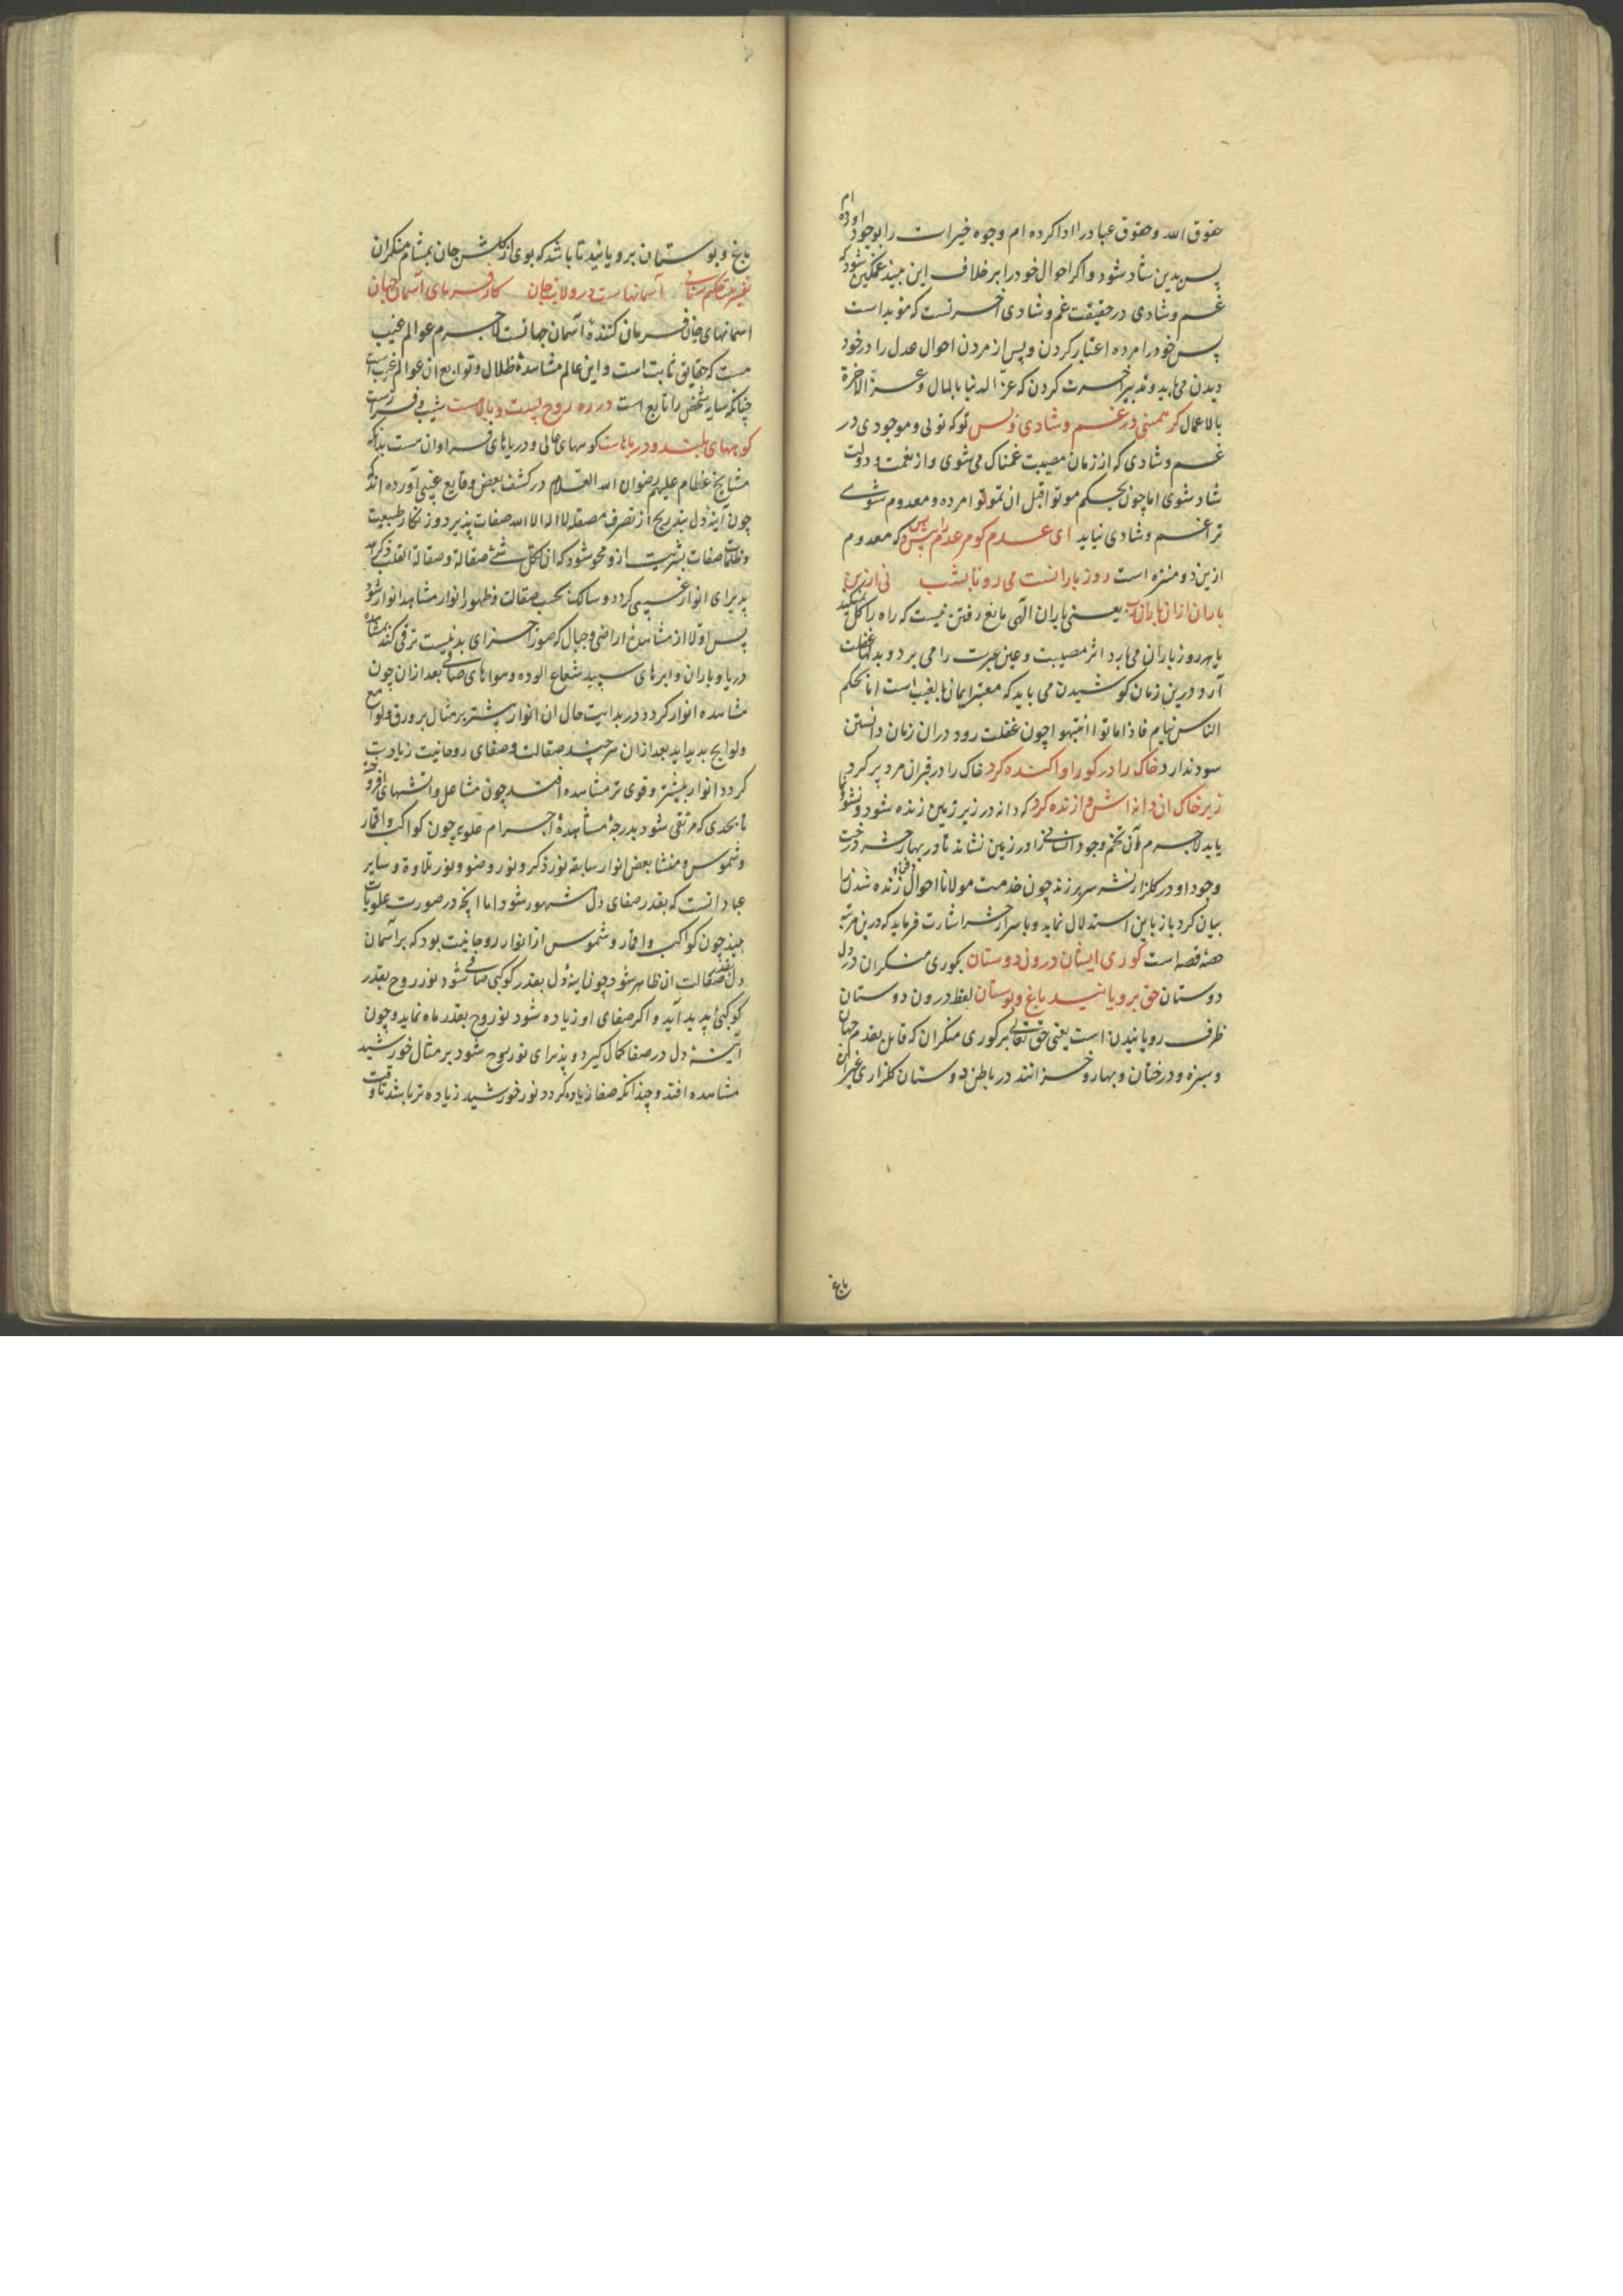 حقوق الله و حقوق عباد را ادا کرده ام و وجوه خیرات را بوجود اوده ام
پس بدین شاد شود و اکر احوال خود را بر خلاف این بیند غمکین شود که
غم و شادی در حقیقت غم و شادی اخرتست که مؤبد است
پس خود را مرده اعتبار کردن و پس از مردن احوال عدل را در خود
دیدن می باید و تدبیر اخرت کردن که عزّ الدنیا بالمال و عزّ الاخرة
بالاعمال کر همینی در غم و شادی و بس تو که تویی و موجودی در
غم و شادی که از زمان مصیبت غمناک می شوی و از نعمت و دولت
شاد شوی اما چون بحکم موتوا قبل ان تموتوا مرده و معدوم شوی
ترا غم و شادی نیاید ای عدم کو مر عدم را پیش و پس که معدوم
ازین دو منزه است روز بارانست می رو تا بشب نی ازین
باران ازان باران رب یعنی باران الهی مانع رفتن نیست که راه را کل میکند
یا هر روز باران می بارد اثر مصیبت و عین عبرت را می برد و بدلها غفلت
آرد درین زمان کوشیدن می باید که معتبر ایمان بالغیب است اما بحکم
الناس نیام فاذا ماتوا انتبهوا چون غفلت رود دران زمان دانستن
سود ندارد خاک را در کور او اکنده کرد خاک را در قبران مرد پر کرد
زیر خاک ان دانه اش را زنده کرد که دانه در زیر زمین زنده شود و نشو و نما
یابد لاجرم آن تخم وجود انسانی را در زمین نشاند تا در بهار حشر درخت
وجود او در کلزار نشر سر بر زند چون خدمت مولانا احوال فنا و زنده شدن را
بیان کرد باز باین استدلال نماید و با سرار حشر اشارت فرماید که درین مرتبه
حصّه قصه است کوری ایشان درون دوستان بکوری منکران در دل
دوستان حق برویانید باغ و بوستان لفظ درون دوستان
ظرف رویانیدن است یعنی حق تعالی بر کوری منکران که قائل بقدم جهان
و سبزه و درختان و بهار و خزانند در باطن دوستان کلزاری غیر ان
باغ
باغ و بوستان برویانید تا باشد که بوی از کلشن جان بمشام منکران
تفسیر بیت حکیم سنائی آسمانهاست در ولایت جان کارفرمای آسمان جهان
اسمانهای جان فرمان کننده آسمان جهانست لاجرم عوالم غیب
هست که حقایق ثابت است و این عالم مشاهده ظلال و توابع ان عوالم غیب است
چنانکه سایه شخص را تابع است در ره روح پست و بالاهست شیب و فرازست
کوههای بلند و دریاهاست کوههای عالی و دریاهای فراوان هست بدانکه
مشایخ عظام علیهم رضوان الله العلام در کشف بعض وقایع غیبی آورده اند که
چون آینه دل بتدریج از تصرف مصقله لا اله الا الله صفات پذیرد و زنکار طبیعت
و ظلمات صفات بشریت ازو محو شود که ان لکل شئ صقالة و صقالة القلب ذکر الله
پذیرای انوار غیبی کردد و سالک بحسب صقالت و ظهور انوار مشاهد انوار شود
پس اولا از مشاهده اراضی و جبال که صور اجزای بدنیست ترقی کند بمشاهده
دریا و باران و ابرهای سپید شعاع الوده و هواهای صافی بعد ازان چون
مشاهده انوار کردد در بدایت حال ان انوار بیشتر بر مثال بروق و لوامع
و لوایح بدید اید بعد ازان هر چند صقالت و صفای روحانیت زیادت
کردد انوار بیشتر و قوی تر مشاهده افتد چون مشاعل و آتشهای افروخته
تا بحدی که مرتقی شود بدرجه مشاهدهٔ اجرام علویه چون کواکب و اقمار
و شموس و منشا بعض انوار سابقه نور ذکر و نور وضو و نور تلاوة و سایر
عباداتست که بقدر صفای دل مشهور شود اما انچه در صورت علویات
بیند چون کواکب و اقمار و شموس از انوار روحانیت بود که بر آسمان
دل بقدر صقالت ان ظاهر شود چون اینهٔ دل بقدر کوکبی صافی شود نور روح بقدر
کوکبی پدید آید و اکر صفای او زیاده شود نور روح بقدر ماه نماید و چون
آیینهٔ دل در صفا کمال کیرد و پذیرای نور روح شود بر مثال خورشید
مشاهده افتد و چندانکه صفا زیاده کردد نور خورشید زیاده تر باشد تا وقت